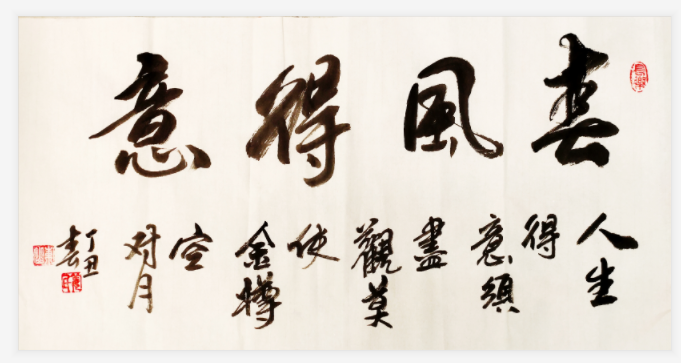 春風得意
人生
得
意須
盡
觀莫
使
金樽
空
对月
丁丑
春